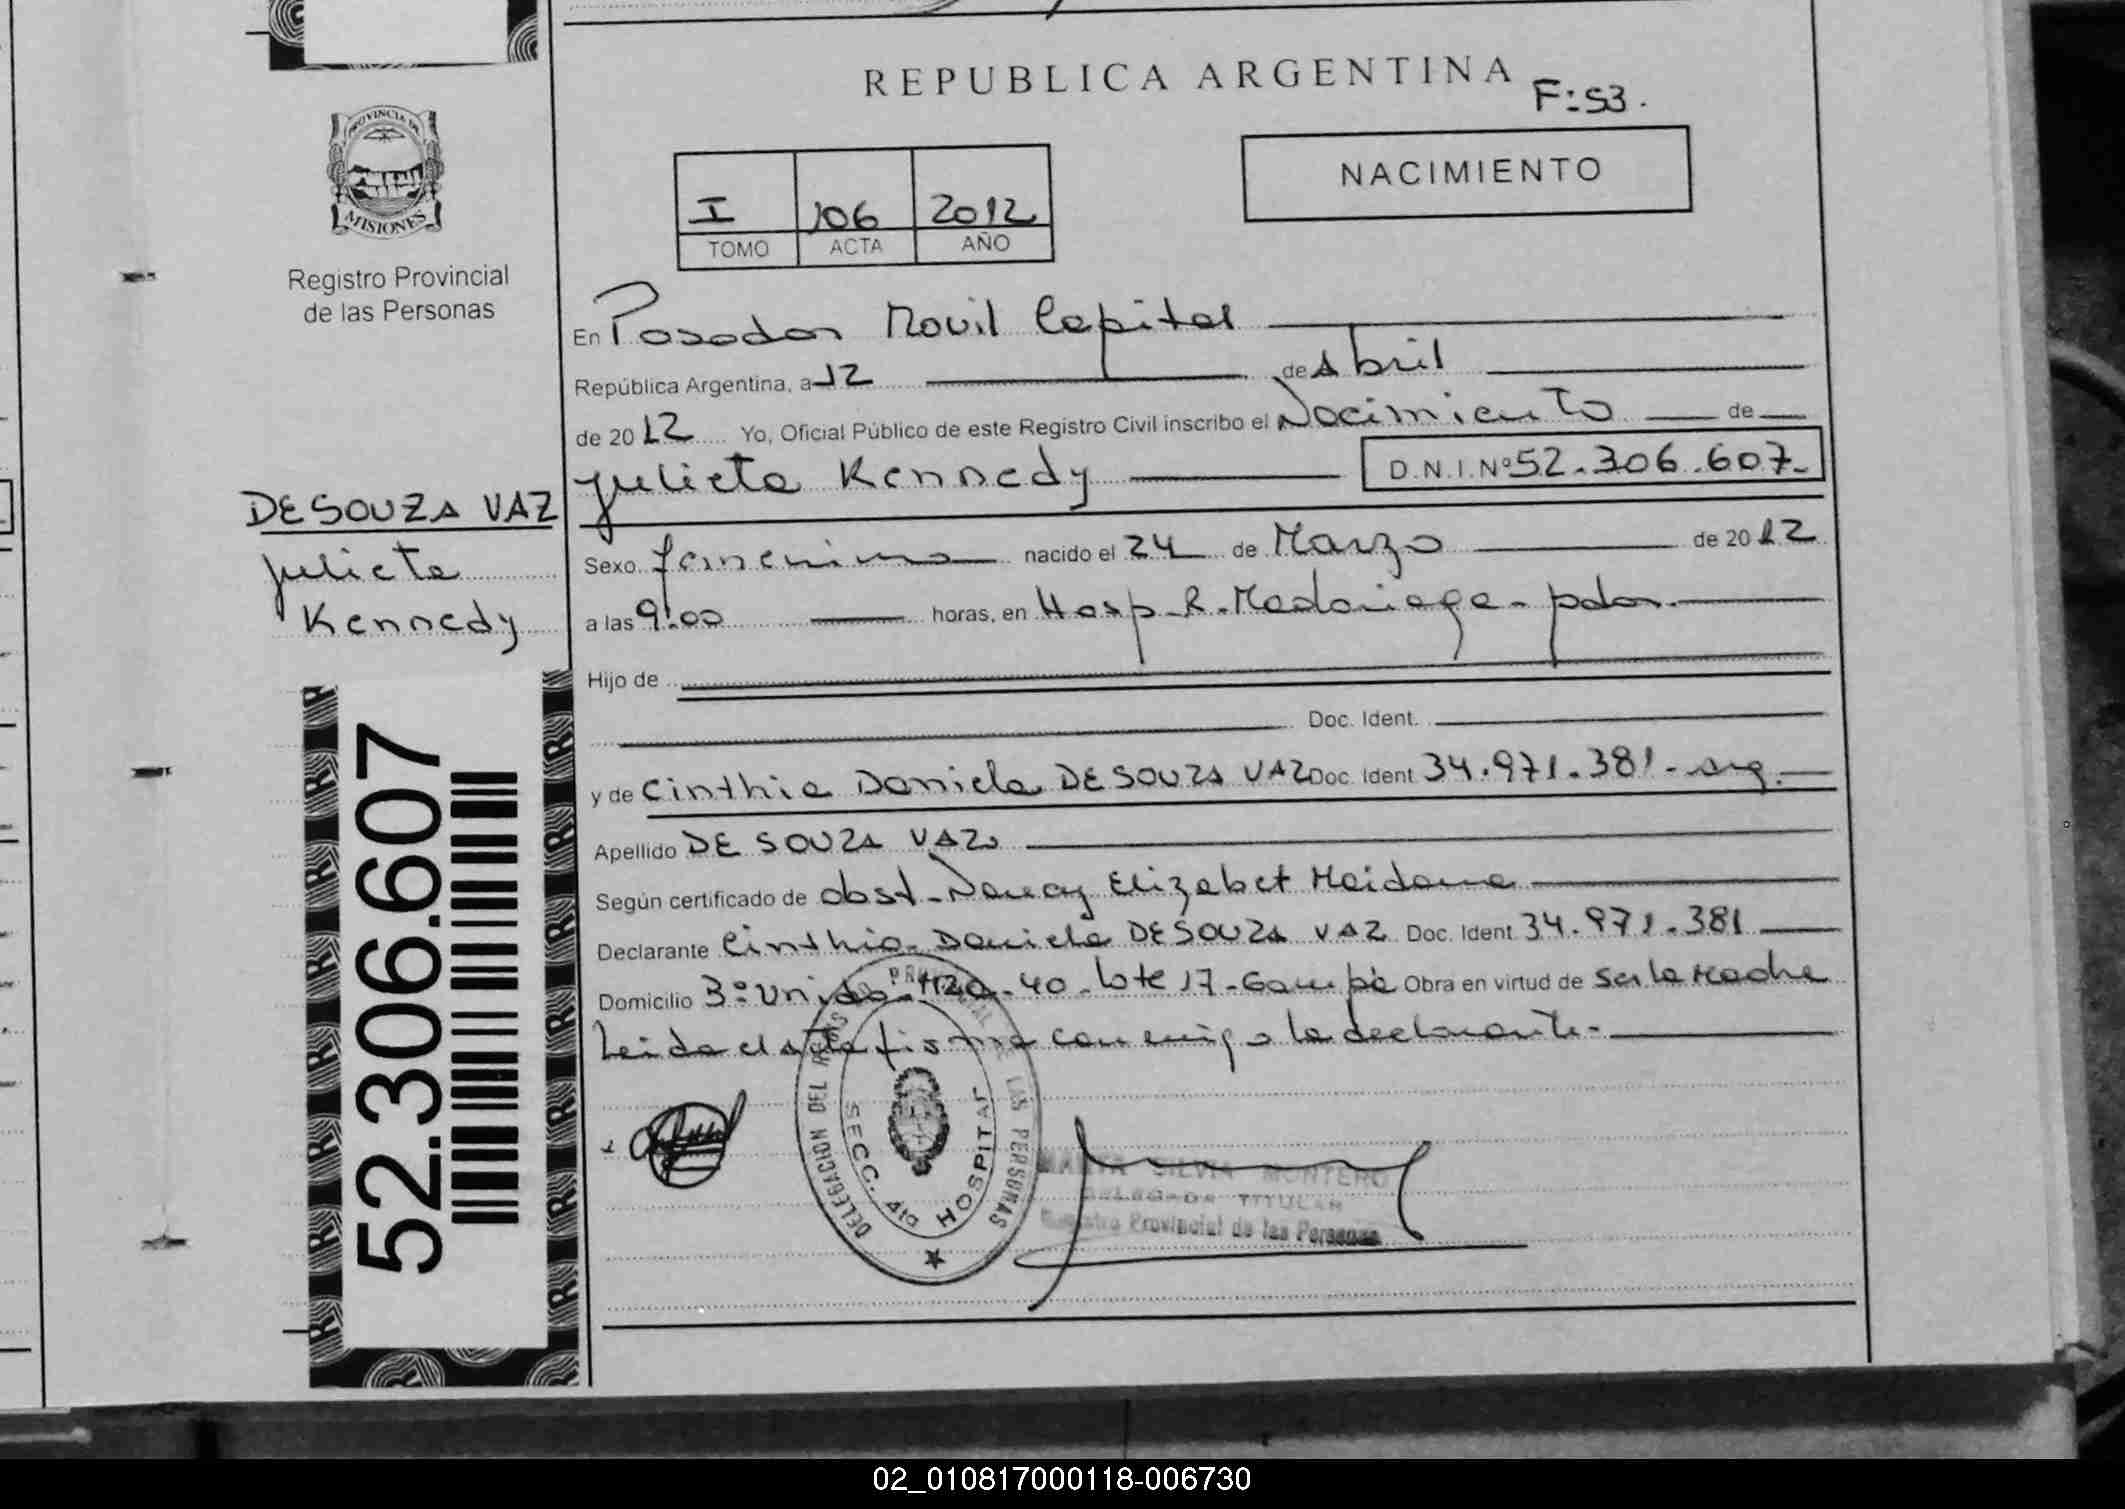 REPUBLICA ARGENTINA
F:53.
PROVINCIA DE
MISIONES
Registro Provincial
de las Personas
NACIMIENTO
I 106 2012
TOMO ACTA AÑO
En Posadas Movil Capital
República Argentina, a 12 de Abril
de 2012 Yo, Oficial Público de este Registro Civil inscribo el Nacimiento de
Julieta Kennedy D.N.I.Nº 52.306.607.-
DE SOUZA VAZ
Julieta
Kennedy
Sexo femenino nacido el 24 de Marzo de 2012
a las 9:00 horas, en Hosp. R. Madariaga - pdas.
Hijo de
Doc. Ident.
y de Cinthia Daniela DE SOUZA VAZ Doc. Ident 34.971.381 - arg.
Apellido DE SOUZA VAZ
Según certificado de obst. Nancy Elizabet Maidana
Declarante Cinthia Daniela DE SOUZA VAZ Doc. Ident 34.971.381
Domicilio 3º Unido - Mza - 40 - lote 17 - Garupá Obra en virtud de ser la Madre
Leida el acta firma conmigo la declarante.-
52.306.607
DELEGACION DEL PROVINCIAL DE LAS PERSONAS
SECC. 4ta HOSPITAL
MARTA SILVIA MONTERO
DELEGADA TITULAR
Registro Provincial de las Personas
02_010817000118-006730